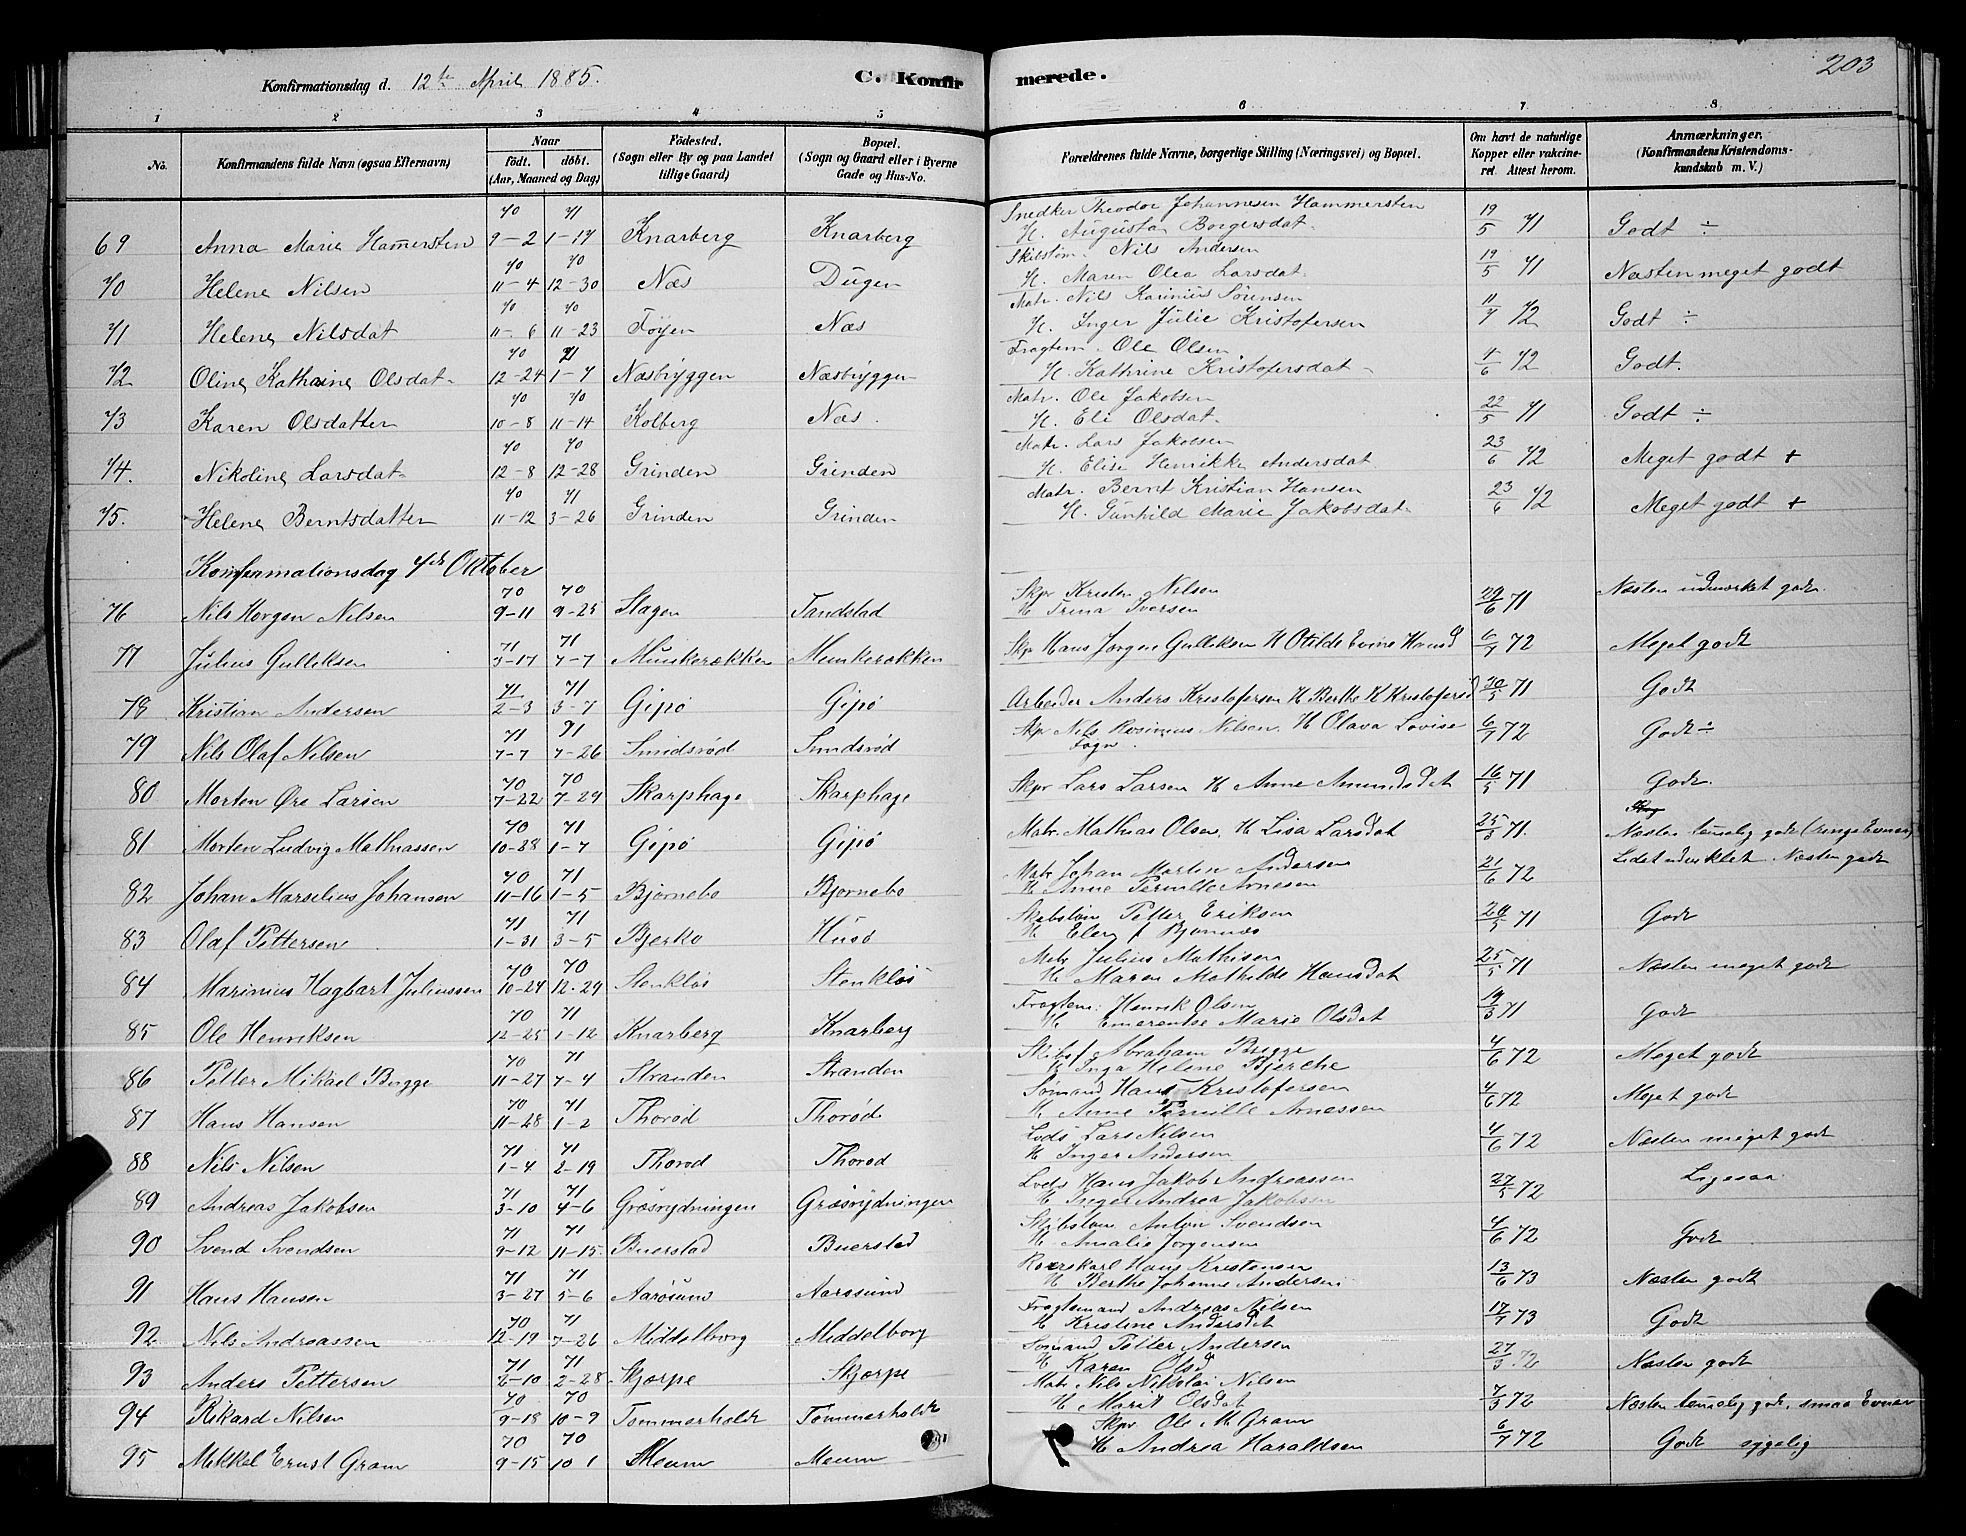 203
Konfirmationsdag d. 12te April 1885. C. Konfirmerede.
1 2 3 4 5 6 7 8
No. Konfirmandens fulde Navn (ogsaa Efternavn) Naar født. døbt. (Aar, Maaned og Dag) Fødested. (Sogn eller By og paa Landet tillige Gaard) Bopæl. (Sogn og Gaard eller i Byerne Gade og Hus-No. Forældrenes fulde Navne, borgerlige Stilling (Næringsvei) og Bopæl. Om havt de naturlige Kopper eller vakcineret. Attest herom. Anmærkninger. (Konfirmandens Kristendomskundskab m. V.)
69 Anna Marie Hamersten 70 9-2 71 1-17 Knarberg Knarberg Snedker Theodor Johannesen Hammersten H. Augusta Borgersdat. 19/5 71 Godt ÷
70 Helene Nilsen 70 11-4 70 12-30 Næs Dugen Skibstøm. Nils Andersen H. Maren Olea Larsdat. 19/5 71 Næsten meget godt
71 Helene Nilsdat 70 11-6 70 11-23 Føyen Næs Matr. Nils Sørensen H. Inger Julie Kristofersen 11/7 72 Godt ÷
72 Oline Kathrine Olsdat. 70 12-24 71 1-7 Næsbryggen Næsbryggen Fragtem. Ole Olsen H. Kathrine Kristofersdat 4/6 72 Godt.
73 Karen Olsdatter 70 10-8 70 11-14 Kolberg Næs. Matr. Ole Jakobsen H. Eli Olsdat. 22/5 71 Godt ÷
74. Nikoline Larsdat. 70 12-8 70 12-28 Grinden Grinden Matr. Lars Jakobsen H. Elise Henrikke Andersdat 23/6 72 Meget godt +
75. Helene Berntsdatter 70 11-12 71 3-26 Grinden Grinden Matr. Bernt Kristian Hansen H. Gunhild Marie Jakobsdat. 23/6 72 Meget godt +
Konfirmationsdag 4de Oktober
76 Nils Horgen Nilsen 70 9-11 70 9-25 Slagen Tandstad Skpr Kristen Nilsen H Trina Iversen 29/6 71 Næsten udmærket godt.
77 Julius Gulliksen 71 3-17 71 7-7 Munkerækken Munkerækken Skpr Hans Jørgen Gulliksen H Otilde Evine Hansd 6/7 72 Meget godt
78 Kristian Andersen 71 2-3 71 3-7 Gipø Gipø Arbeider Anders Kristofersen H Berthe K Kristofersd 30/5 71 Godt
79 Nils Olaf Nilsen 71 7-7 71 7-26 Smidsrød Smidsrød Skpr Nils Rosinius Nilsen. H Olava Lovise Fogn 6/7 72 Godt ÷
80 Morten Øre Larsen 70 7-22 70 7-29 Skarphage Skarphage Skpr Lars Larsen H Anne Amundsdat 16/5 71 Godt.
81 Morten Ludvig Mathiassen 70 10-28 71 1-7 Gipø Gipø Matr. Mathias Olsen. H Lisa Larsdat 25/5 71. Næsten temelig godt (ringe Evner)
82 Johan Marselius Johansen 70 11-16 71 1-5 Bjørnebo Bjørnebo Matr Johan Martin Andersen H Anne Pernille Arnesen 21/6 72 Lidet udviklet Næsten godt
83 Olaf Pettersen 71 1-31 71 3-5 Bjerkø Husø Skibstøm Petter Eriksen H Elen f Bjønnes 20/5 71 Godt
84 Marinius Hagbart Juliussen 70 10-24 70 12-29 Stenkløs Stenkløs Matr Julius Mathisen H Maren Mathilde Hansdat 25/5 71 Næsten meget godt
85 Ole Henriksen 70 12-25 71 1-12 Knarberg Knarberg Fragtem: Henrik Olsen H Emerentse Marie Olsdat 19/3 71 Godt
86 Petter Mikael Bugge 70 11-27 71 7-4 Stranden Stranden Skibsf. Abraham Bugge H Inga Helene Bjerche 4/6 72 Meget godt
87 Hans Hansen 70 11-28 71 1-2 Thorød Thorød Sømand Hans Kristofersen H Anne Pernille Arnessen 4/6 72 Meget godt
88 Nils Nilsen 71 1-4 71 2-19 Thorød Thorød Lods Lars Nilsen H Inger Andersen 4/6 72 Næsten meget godt
89 Andreas Jakobsen 71 3-10 71 4-6 Græsrydningen Græsrydningen Lods Hans Jakob Andreassen H Inger Andrea Jakobsen 27/5 72 Ligesaa
90 Svend Svendsen 71 9-12 71 11-15. Buerstad Buerstad Skibstøm Anton Svendsen H Amalie Jørgensen 4/6 72 Godt
91 Hans Hansen 71 3-27 71 5-6 Aarøsund Aarøsund Roerskarl Hans Kristensen H Berthe Johanne Andersen 13/6 73 Næsten godt
92 Nils Andreassen 70 12-19 71 7-26 Middelborg Middelborg Fragtemand Andreas Nilsen H Kristine Andersdat 17/7 73 Godt
93 Anders Pettersen 71 2-10 71 2-28 Skjerpe Skjerpe Sømand Petter Andersen H Karen Olsd 27/3 72 Næsten godt
94 Rikard Nilsen 70 9-18 70 10-9 Tommerholdt Tommerholdt Matr Nils Nikolai Nilsen H Marit Olsdat 7/3 72 Næsten temelig godt. smaa Evner
95 Mikkel Ernst Gram 70 9-15 70 10 1 Meum Meum Skpr Ole M Gram H Andrea Haraldsen 6/7 72 Godt sygelig